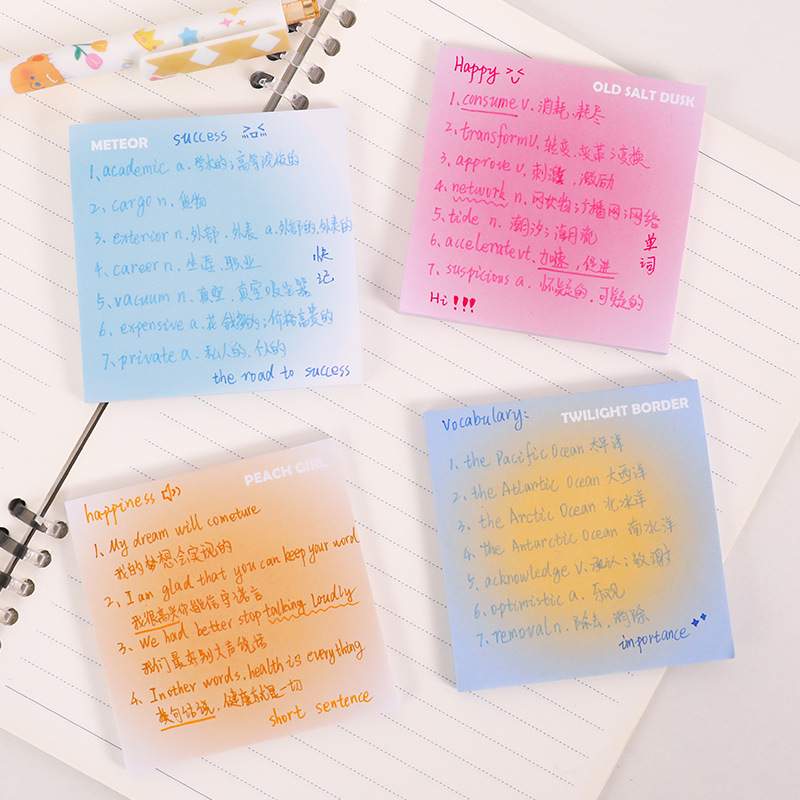 METEOR success
1、academic a. 学术的；高等院校的
2、cargo n、货物
3、exterior n、外部、外表 a.外部的,外表的
4、career n、生涯、职业
快记
5、vacuum n、真空、真空吸尘器
6、expensive a、花钱多的；价格高贵的
7、private a、私人的、个人的
the road to success
Happy
OLD SALT DUSK
1、consume v. 消耗、耗尽
2、transform v. 转变、变革；变换
3、approve v. 刺激、激励
4、network n. 网状物；广播网；网络
5、tide n. 潮汐；潮流
6、accelerate vt. 加速、促进
7、suspicious a. 怀疑的、可疑的
单词
Hi !!!
PEACH GIRL
happiness
1、My dream will cometure
我的梦想会实现的
2、I am glad that you can keep your word
我很高兴你能信守诺言
3、We had better stop talking loudly
我们最好别大声说话
4、In other words, health is everything
换句话说，健康就是一切
short sentence
Vocabulary:
TWILIGHT BORDER
1、the Pacific Ocean 太平洋
2、the Atlantic Ocean 大西洋
3、the Arctic Ocean 北冰洋
4、the Antarctic Ocean 南冰洋
5、acknowledge v. 承认；致谢
6、optimistic a. 乐观
7、removal n. 除去、消除
importance